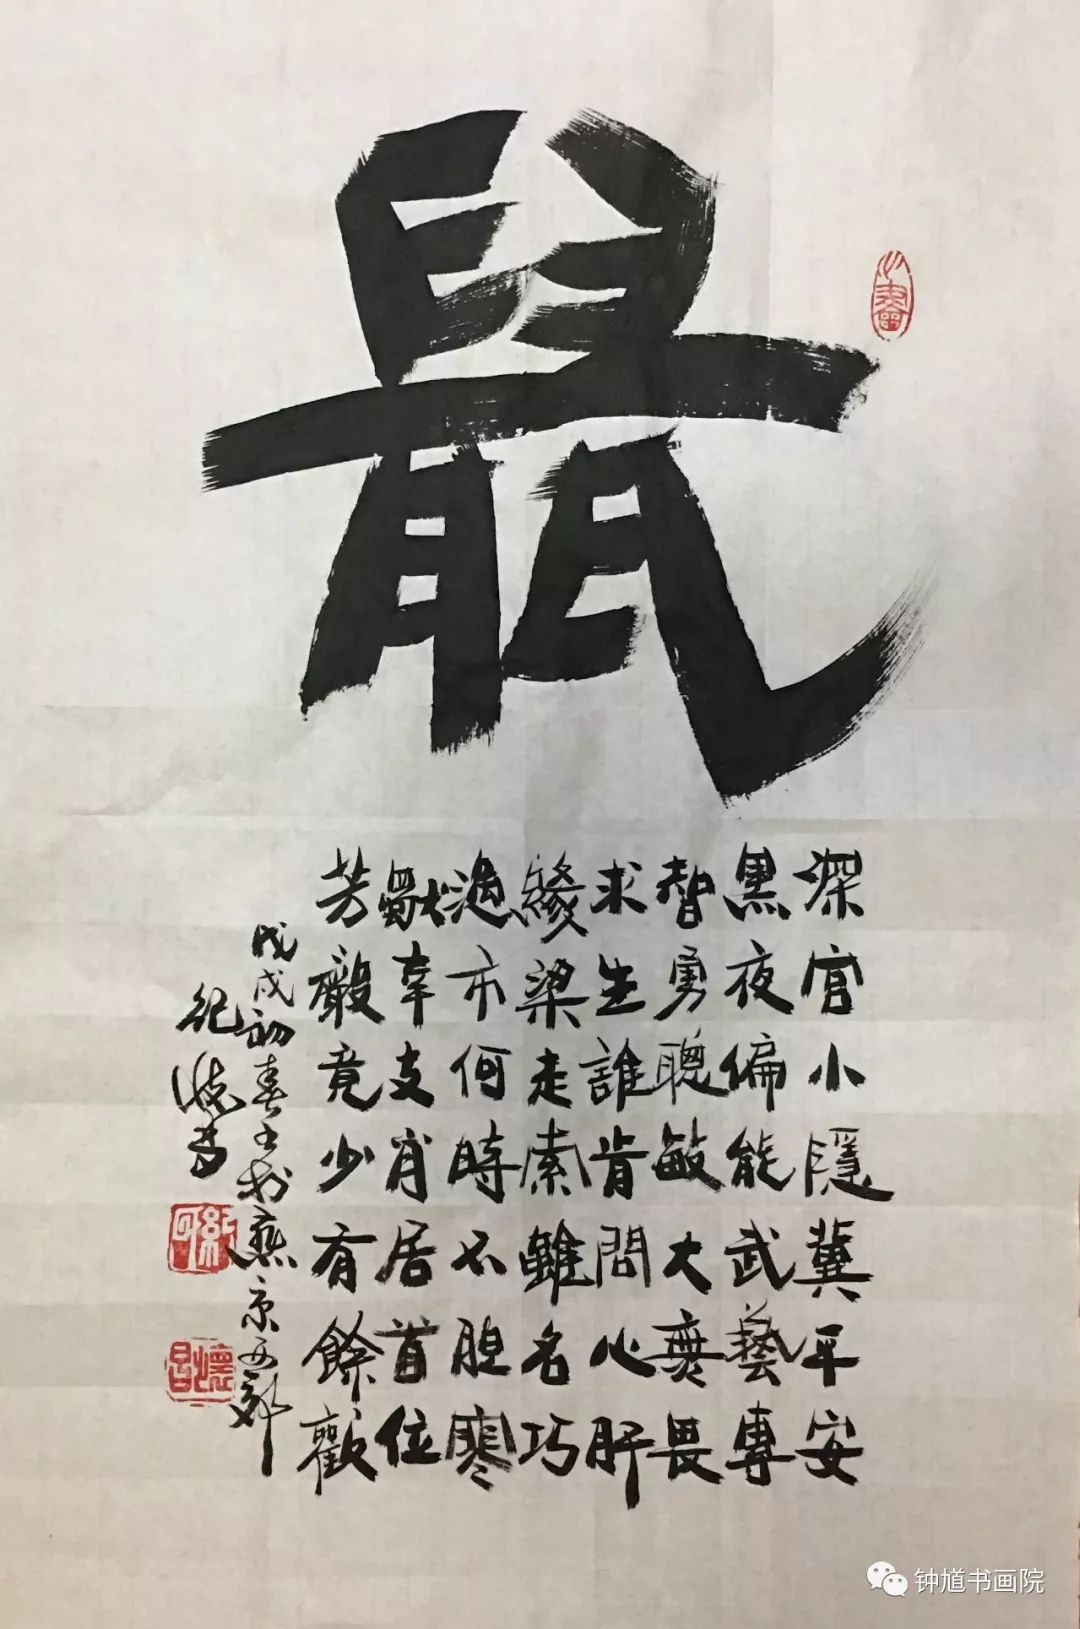 鼠
深宫小隱冀平安
黑夜偏能武藝專
智勇聰敏大無畏
求生誰肯問心肝
緣梁走索雖名巧
過市何時不膽寒
獻幸支肖居首位
芳嚴竟少有餘歡
戊戌初春书於燕京西郊
纪怀昌
钟馗书画院